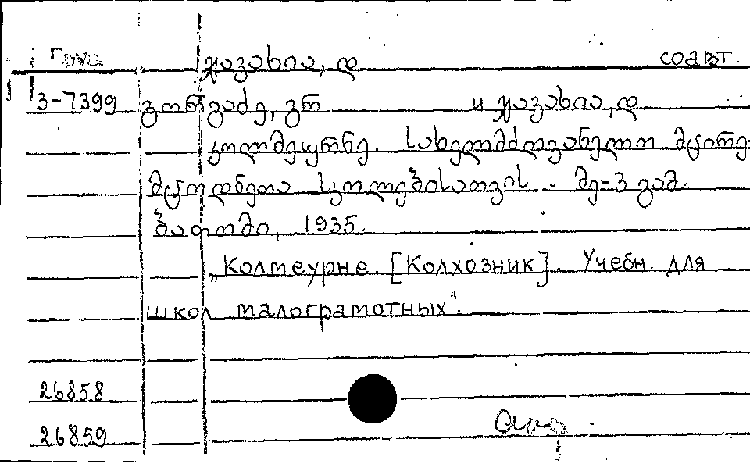 Груз. ჯავახია, დ соавт.
3-7399 გორგაძე, გრ и ჯავახია, დ
კოლმეურნე. სახელმძღვანელო მცირე
მცოდნეთა სკოლებისათვის - მე-3 გამ.
ბათომი, 1935.
„Колмеурне [Колхозник] Учебн. для
школ малограмотных".
26858
26859